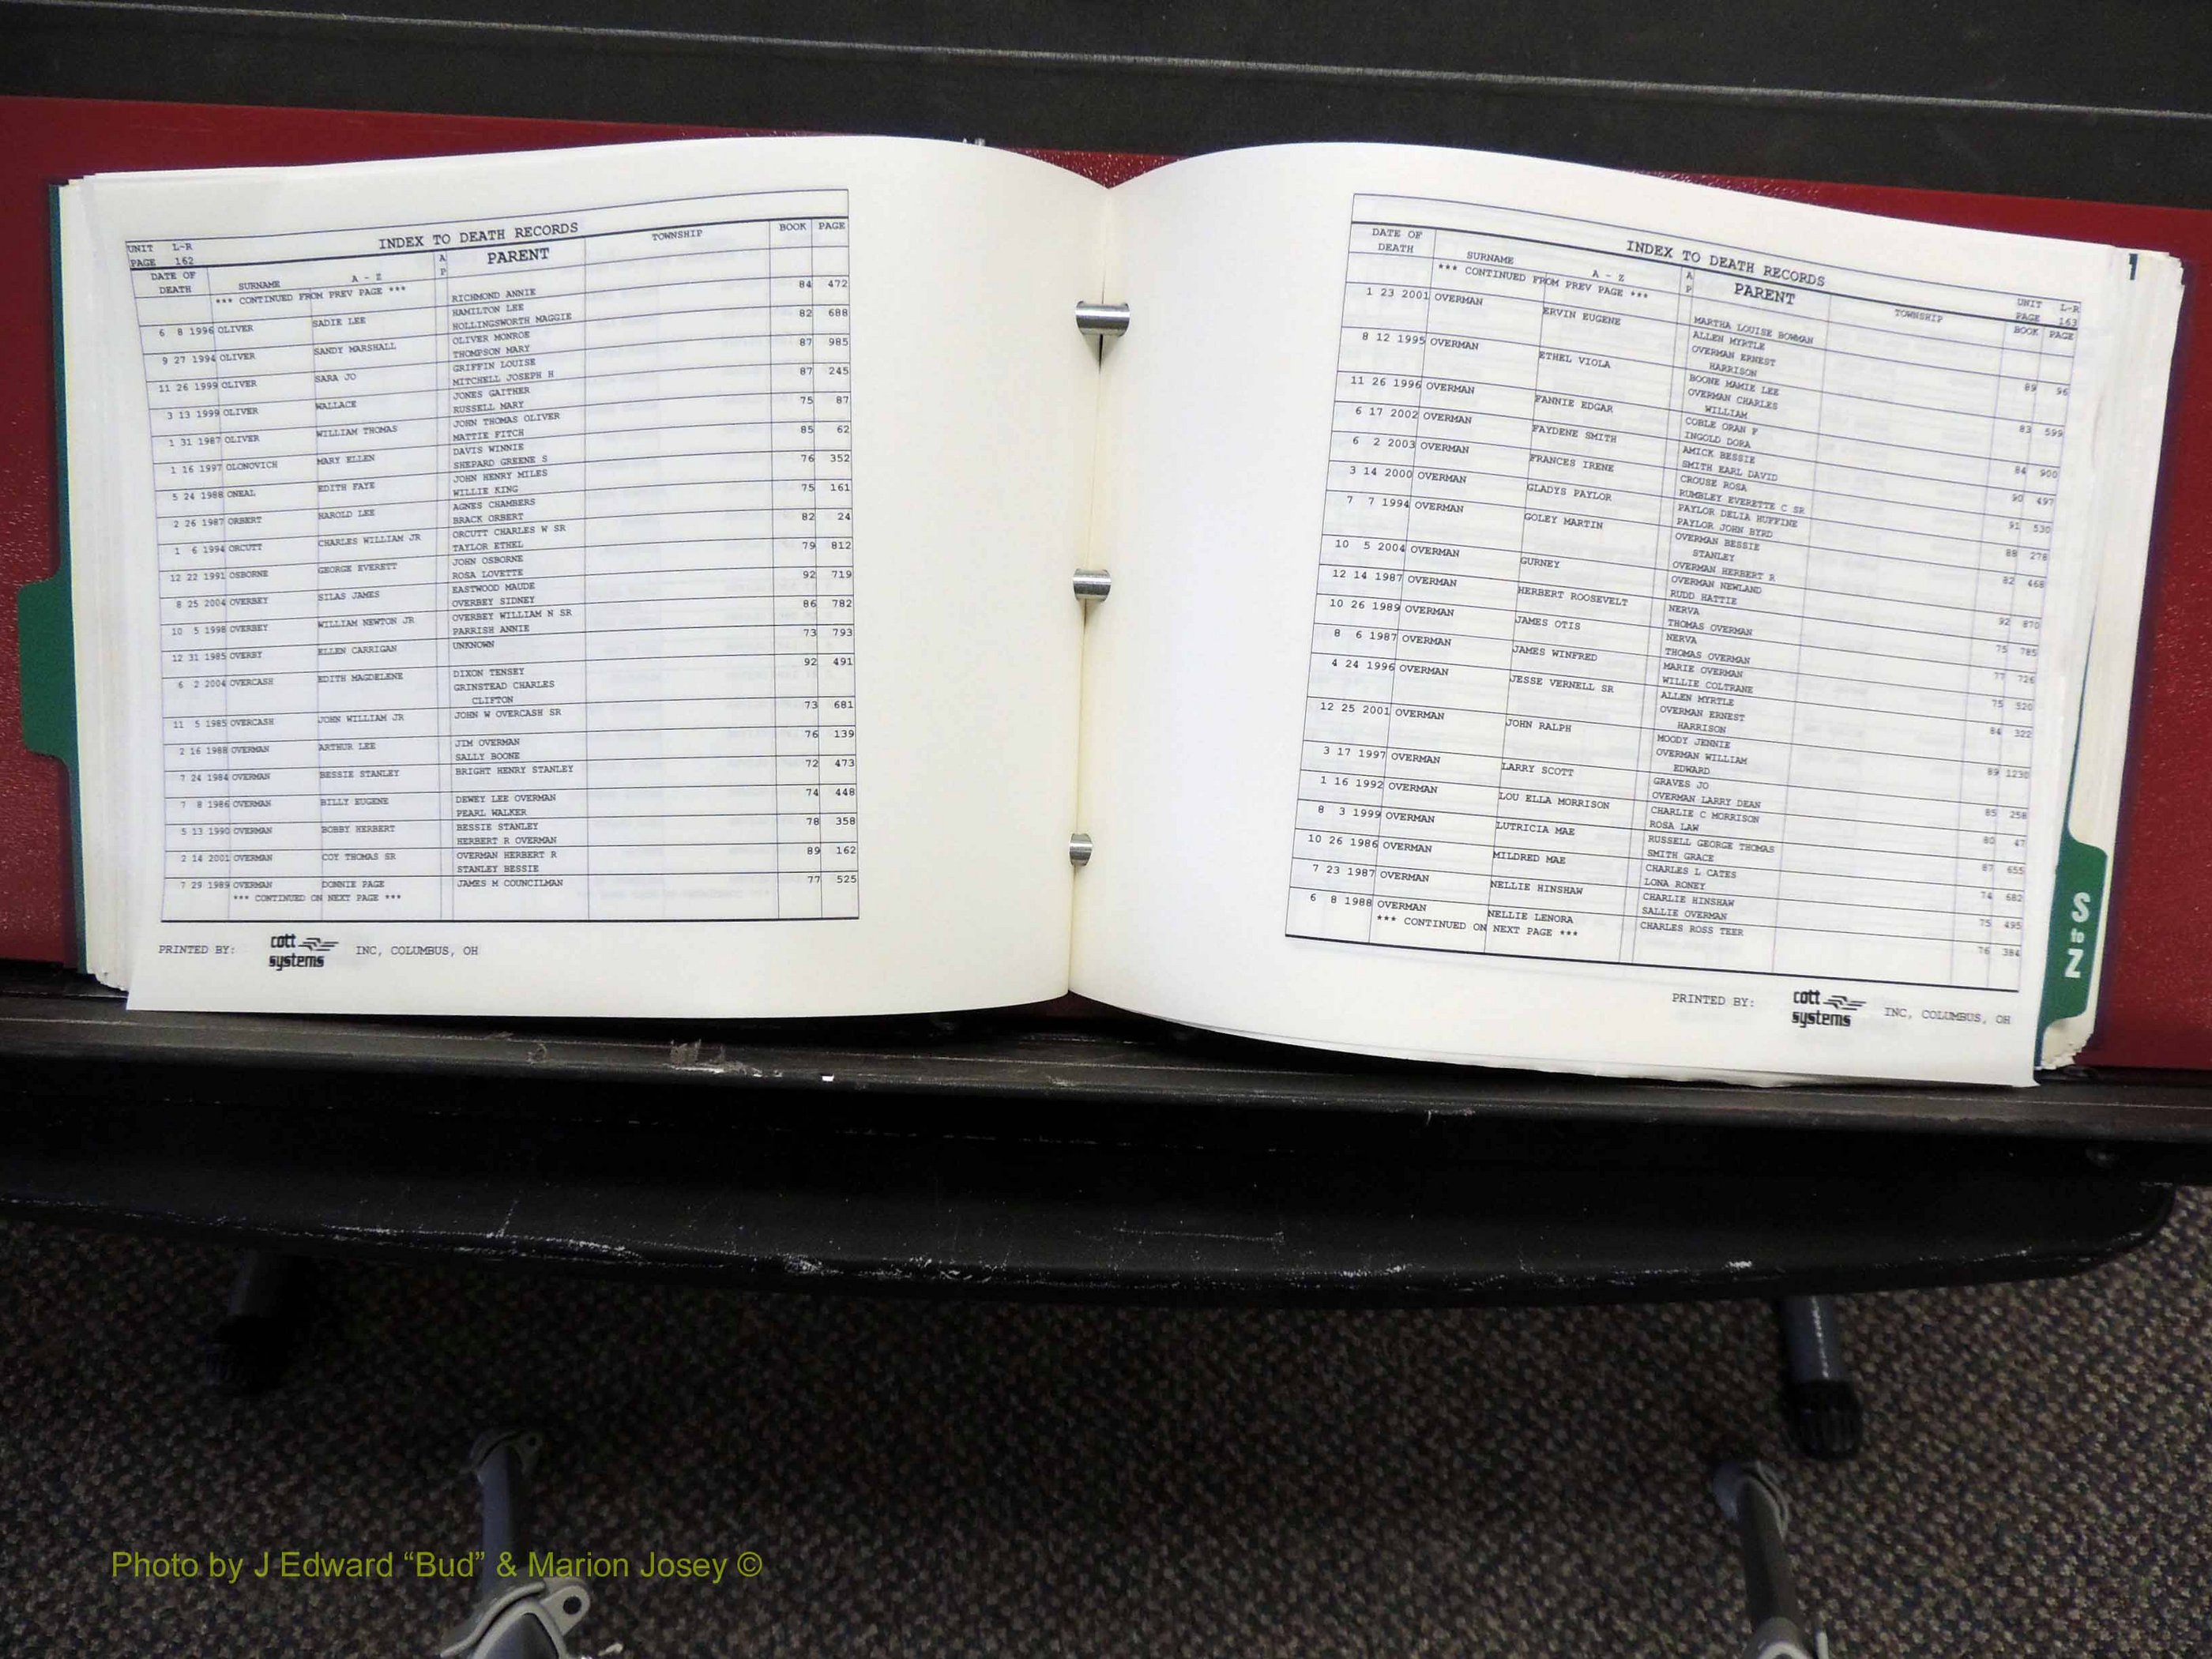 INDEX TO DEATH RECORDS
UNIT L-R
PAGE 162
DATE OF DEATH SURNAME A - Z A P PARENT TOWNSHIP BOOK PAGE
*** CONTINUED FROM PREV PAGE *** RICHMOND ANNIE
6 8 1996 OLIVER SADIE LEE HAMILTON LEE 84 472
HOLLINGSWORTH MAGGIE
9 27 1994 OLIVER SANDY MARSHALL OLIVER MONROE 82 688
THOMPSON MARY
11 26 1999 OLIVER SARA JO GRIFFIN LOUISE 87 985
MITCHELL JOSEPH H
3 13 1999 OLIVER WALLACE JONES GAITHER 87 245
RUSSELL MARY
1 31 1987 OLIVER WILLIAM THOMAS JOHN THOMAS OLIVER 75 87
MATTIE FITCH
1 16 1997 OLONOVICH MARY ELLEN DAVIS WINNIE 85 62
SHEPARD GREENE S
5 24 1988 ONEAL EDITH FAYE JOHN HENRY MILES 76 352
WILLIE KING
2 26 1987 ORBERT HAROLD LEE AGNES CHAMBERS 75 161
BRACK ORBERT
1 6 1994 ORCUTT CHARLES WILLIAM JR ORCUTT CHARLES W SR 82 24
TAYLOR ETHEL
12 22 1991 OSBORNE GEORGE EVERETT JOHN OSBORNE 79 812
ROSA LOVETTE
8 25 2004 OVERBEY SILAS JAMES EASTWOOD MAUDE 92 719
OVERBEY SIDNEY
10 5 1998 OVERBEY WILLIAM NEWTON JR OVERBEY WILLIAM N SR 86 782
PARRISH ANNIE
12 31 1985 OVERBY ELLEN CARRIGAN UNKNOWN 73 793
6 2 2004 OVERCASH EDITH MAGDELENE DIXON TENSEY 92 491
GRINSTEAD CHARLES
CLIFTON
11 5 1985 OVERCASH JOHN WILLIAM JR JOHN W OVERCASH SR 73 681
2 16 1988 OVERMAN ARTHUR LEE JIM OVERMAN 76 139
SALLY BOONE
7 24 1984 OVERMAN BESSIE STANLEY BRIGHT HENRY STANLEY 72 473
7 8 1986 OVERMAN BILLY EUGENE DEWEY LEE OVERMAN 74 448
PEARL WALKER
5 13 1990 OVERMAN BOBBY HERBERT BESSIE STANLEY 78 358
HERBERT R OVERMAN
2 14 2001 OVERMAN COY THOMAS SR OVERMAN HERBERT R 89 162
STANLEY BESSIE
7 29 1989 OVERMAN DONNIE PAGE JAMES M COUNCILMAN 77 525
*** CONTINUED ON NEXT PAGE ***
PRINTED BY: cott systems INC, COLUMBUS, OH
INDEX TO DEATH RECORDS
UNIT L-R
PAGE 163
DATE OF DEATH SURNAME A - Z A P PARENT TOWNSHIP BOOK PAGE
*** CONTINUED FROM PREV PAGE *** MARTHA LOUISE BOWMAN
1 23 2001 OVERMAN ERVIN EUGENE ALLEN MYRTLE 89 96
OVERMAN ERNEST
HARRISON
8 12 1995 OVERMAN ETHEL VIOLA BOONE MAMIE LEE 83 599
OVERMAN CHARLES
WILLIAM
11 26 1996 OVERMAN FANNIE EDGAR COBLE ORAN F 84 900
INGOLD DORA
6 17 2002 OVERMAN FAYDENE SMITH AMICK BESSIE 90 497
SMITH EARL DAVID
6 2 2003 OVERMAN FRANCES IRENE CROUSE ROSA 91 530
RUMBLEY EVERETTE C SR
3 14 2000 OVERMAN GLADYS PAYLOR PAYLOR DELIA HUFFINE 88 276
PAYLOR JOHN BYRD
7 7 1994 OVERMAN GOLEY MARTIN OVERMAN BESSIE 82 468
STANLEY
OVERMAN HERBERT R
10 5 2004 OVERMAN GURNEY OVERMAN NEWLAND 92 870
RUDD HATTIE
12 14 1987 OVERMAN HERBERT ROOSEVELT NERVA 75 785
THOMAS OVERMAN
10 26 1989 OVERMAN JAMES OTIS NERVA 77 726
THOMAS OVERMAN
8 6 1987 OVERMAN JAMES WINFRED MARIE OVERMAN 75 520
WILLIE COLTRANE
4 24 1996 OVERMAN JESSE VERNELL SR ALLEN MYRTLE 84 322
OVERMAN ERNEST
HARRISON
12 25 2001 OVERMAN JOHN RALPH MOODY JENNIE 89 1230
OVERMAN WILLIAM
EDWARD
3 17 1997 OVERMAN LARRY SCOTT GRAVES JO 85 258
OVERMAN LARRY DEAN
1 16 1992 OVERMAN LOU ELLA MORRISON CHARLIE C MORRISON 80 47
ROSA LAW
8 3 1999 OVERMAN LUTRICIA MAE RUSSELL GEORGE THOMAS 87 655
SMITH GRACE
10 26 1986 OVERMAN MILDRED MAE CHARLES L CATES 74 682
LONA RONEY
7 23 1987 OVERMAN NELLIE HINSHAW CHARLIE HINSHAW 75 495
SALLIE OVERMAN
6 8 1988 OVERMAN NELLIE LENORA CHARLES ROSS TEER 76 384
*** CONTINUED ON NEXT PAGE ***
PRINTED BY: cott systems INC, COLUMBUS, OH
S to Z
Photo by J Edward “Bud” & Marion Josey ©